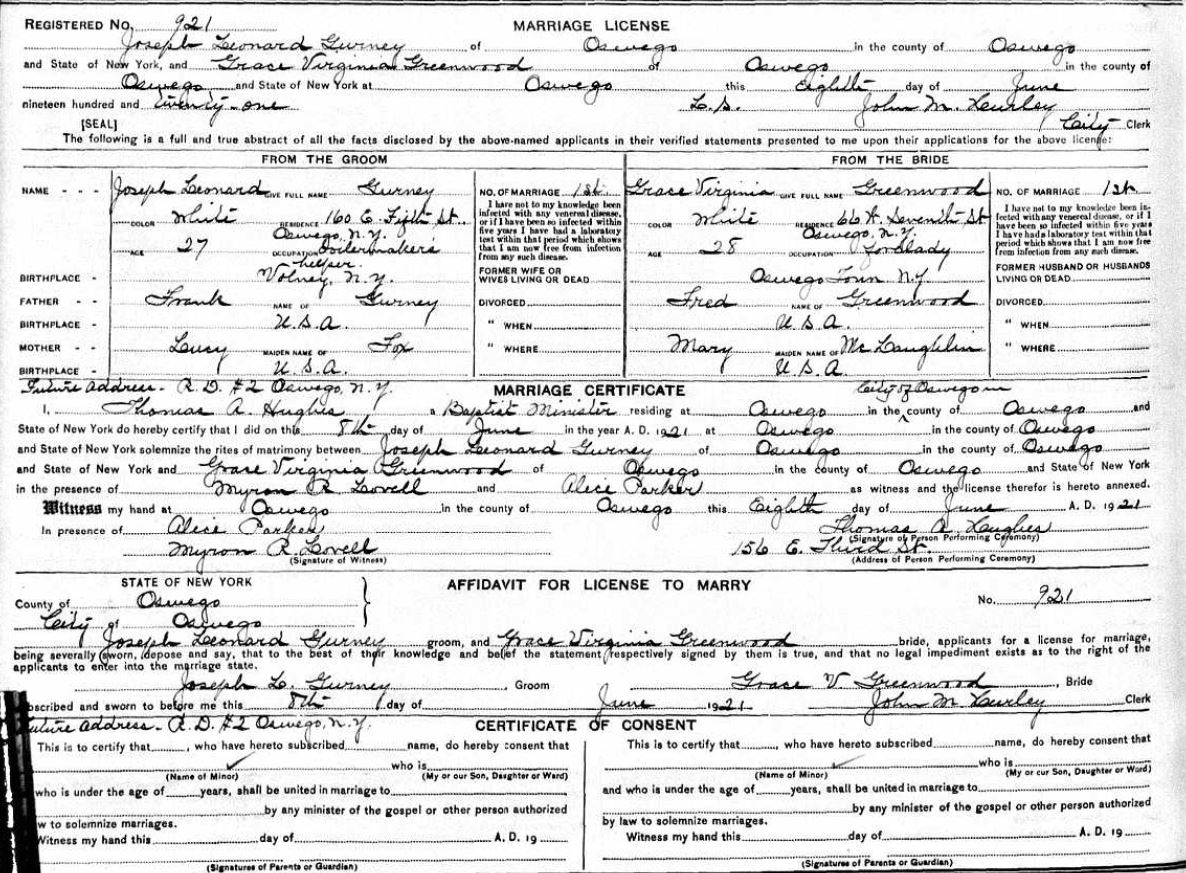 REGISTERED NO. 921 MARRIAGE LICENSE
Joseph Leonard Gurney of Oswego in the county of Oswego
and State of New York, and Grace Virginia Greenwood of Oswego in the county of
Oswego and State of New York at Oswego this Eighth day of June
nineteen hundred and twenty-one L.S. John M. Hurley
[SEAL] City Clerk
The following is a full and true abstract of all the facts disclosed by the above-named applicants in their verified statements presented to me upon their applications for the above license:
FROM THE GROOM FROM THE BRIDE
NAME - - - Joseph Leonard GIVE FULL NAME Gurney
COLOR White RESIDENCE 160 E. Fifth St.
Oswego, N.Y.
AGE 27 OCCUPATION Boilermakers
helper
BIRTHPLACE - Volney, N.Y.
FATHER - - Frank NAME OF Gurney
BIRTHPLACE - U.S.A.
MOTHER - - Lucy MAIDEN NAME OF Fox
BIRTHPLACE - U.S.A.
NO. OF MARRIAGE 1st.
I have not to my knowledge been
infected with any venereal disease,
or if I have been so infected within
five years I have had a laboratory
test within that period which shows
that I am now free from infection
from any such disease.
FORMER WIFE OR
WIVES LIVING OR DEAD
DIVORCED
" WHEN
" WHERE
Grace Virginia GIVE FULL NAME Greenwood
COLOR White RESIDENCE 66 W. Seventh St
Oswego, N.Y.
AGE 28 OCCUPATION
Oswego Town N.Y.
Fred NAME OF Greenwood
U.S.A.
Mary MAIDEN NAME OF McLaughlin
U.S.A.
NO. OF MARRIAGE 1st.
I have not to my knowledge been in-
fected with any venereal disease, or if I
have been so infected within five years
I have had a laboratory test within that
period which shows that I am now free
from infection from any such disease.
FORMER HUSBAND OR HUSBANDS
LIVING OR DEAD
DIVORCED
" WHEN
" WHERE
Future Address - R.D. #2 Oswego, N.Y. MARRIAGE CERTIFICATE City of Oswego in
I, Thomas A. Hughes, a Baptist Minister residing at Oswego in the county of Oswego and
State of New York do hereby certify that I did on this 8th day of June in the year A. D. 1921 at Oswego in the county of Oswego
and State of New York solemnize the rites of matrimony between Joseph Leonard Gurney of Oswego in the county of Oswego
and State of New York and Grace Virginia Greenwood of Oswego in the county of Oswego and State of New York
in the presence of Myron R. Lovell and Alice Parker as witness and the license therefor is hereto annexed.
Witness my hand at Oswego in the county of Oswego this Eighth day of June A. D. 1921
In presence of Alice Parker Thomas A. Hughes
(Signature of Person Performing Ceremony)
Myron R. Lovell 156 E. Third St.
(Signature of Witness) (Address of Person Performing Ceremony)
STATE OF NEW YORK AFFIDAVIT FOR LICENSE TO MARRY
County of Oswego No. 921
City of Oswego
Joseph Leonard Gurney groom, and Grace Virginia Greenwood bride, applicants for a license for marriage,
being severally sworn, depose and say, that to the best of their knowledge and belief the statement respectively signed by them is true, and that no legal impediment exists as to the right of the
applicants to enter into the marriage state.
Joseph L. Gurney, Groom Grace V. Greenwood, Bride
ubscribed and sworn to before me this 8th day of June 1921 John M Hurley Clerk
Future address - R.D. #2 Oswego, N.Y. CERTIFICATE OF CONSENT
This is to certify that, who have hereto subscribed name, do hereby consent that
who is
(Name of Minor) (My or our Son, Daughter or Ward)
who is under the age of years, shall be united in marriage to
by any minister of the gospel or other person authorized
aw to solemnize marriages.
Witness my hand this day of A. D. 19
(Signatures of Parents or Guardian)
This is to certify that, who have hereto subscribed name, do hereby consent that
who is
(Name of Minor) (My or our Son, Daughter or Ward)
and who is under the age of years, shall be united in marriage to
by any minister of the gospel or other person authorized
by law to solemnize marriages.
Witness my hand this day of A. D. 19
(Signatures of Parents or Guardian)